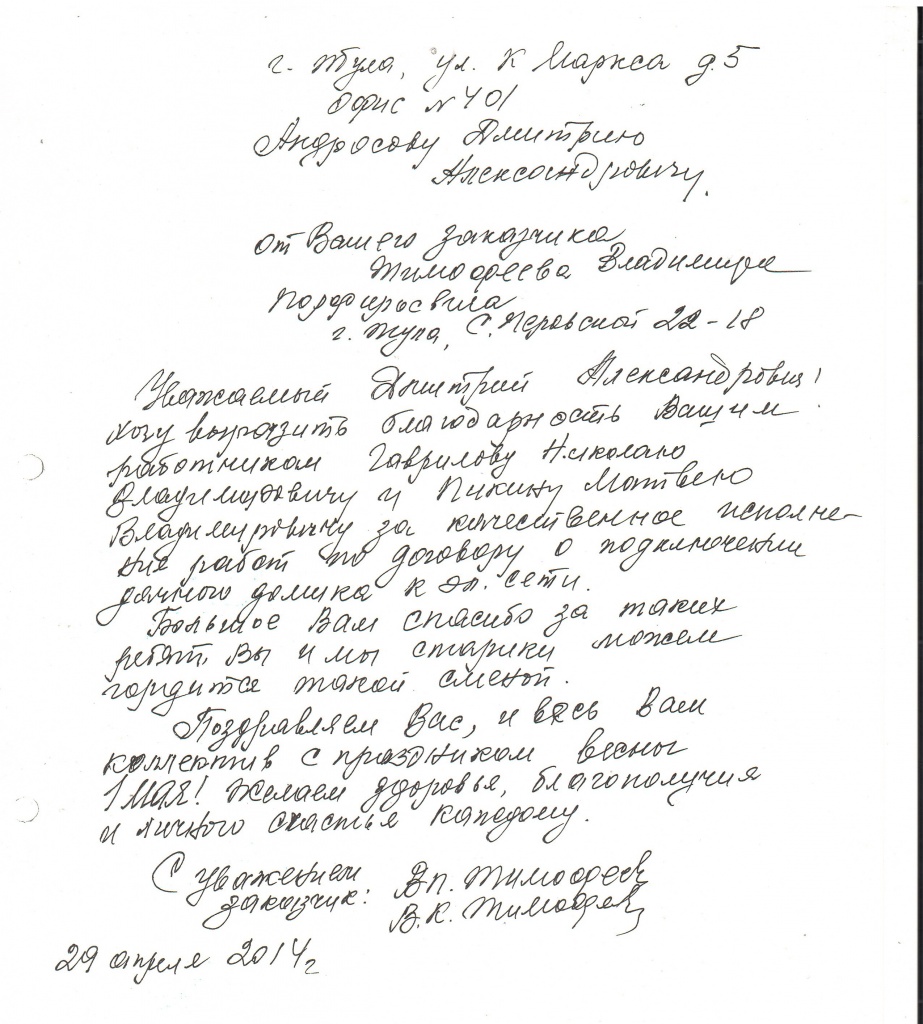 г. Тула, ул. К Маркса д.5
офис № 401
Андросову Дмитрию
Александровичу.
от Вашего заказчика
Тимофеева Владимира
Порфирьевича
г. Тула, С. Перовской 22-18
Уважаемый Дмитрий Александрович!
хочу выразить благодарность Вашим
работникам Гаврилову Николаю
Владимировичу и Пикину Матвею
Владимировичу за качественное исполне-
ние работ по договору о подключении
дачного домика к эл. сети.
Большое Вам спасибо за таких
ребят. Вы и мы старики можем
гордится такой сменой.
Поздравляем Вас, и весь Вам
коллектив с праздником весны
1 МАЯ! Желаем здоровья, благополучия
и личного счастья каждому.
С уважением
заказчик: Вп. Тимофеев
В.К. Тимофеев
29 апреля 2014г